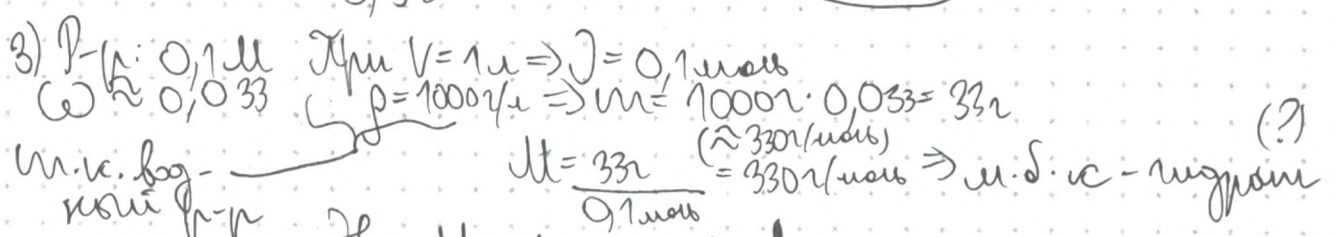 3) Р-р: 0,1 М При V = 1л => ν = 0,1 моль
ω ≈ 0,033 ρ = 1000 г/л => m = 1000г · 0,033 = 33г
т.к. вод- M = 33г/0,1 моль (≈ 330г/моль) = 330г/моль => м.б. к - гидрат (?)
ный р-р